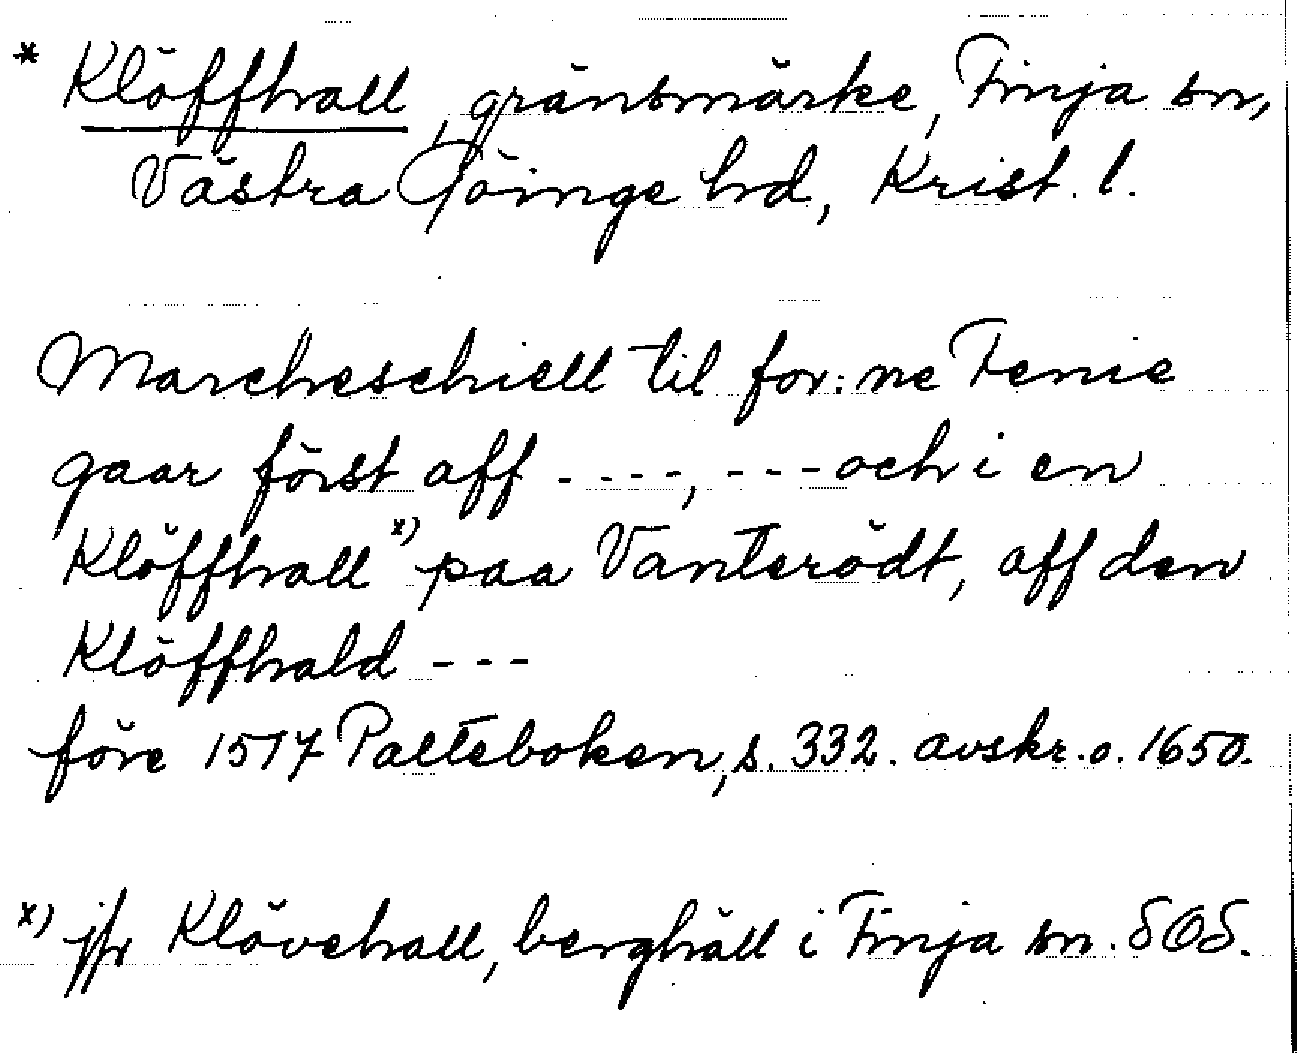 * Klöffhall, gränsmärke, Finja sn,
Västra Göinge hd, Krist. l.
Marcheschiell til for: ne Fenie
gaar först aff - - - -, - - - och i en
Klöffhall x) paa Vanterödt, aff den
Klöffhald - - -
före 1517 Palteboken, s. 332. avskr. o. 1650.
x) jfr Klövehall, berghäll i Finja sn. SOS.